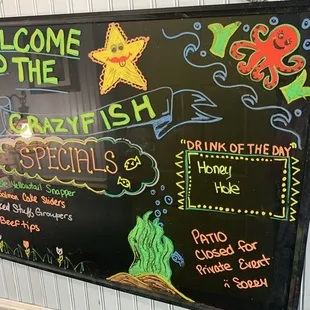 ELCOME
O THE
CRAZYFISH
SPECIALS
Yellowtail Snapper
Salmon Cake Sliders
Stuffed Groupers
Beef tips
"DRINK OF THE DAY"
Honey
Hole
PATIO
Closed for
Private Event
Sorry